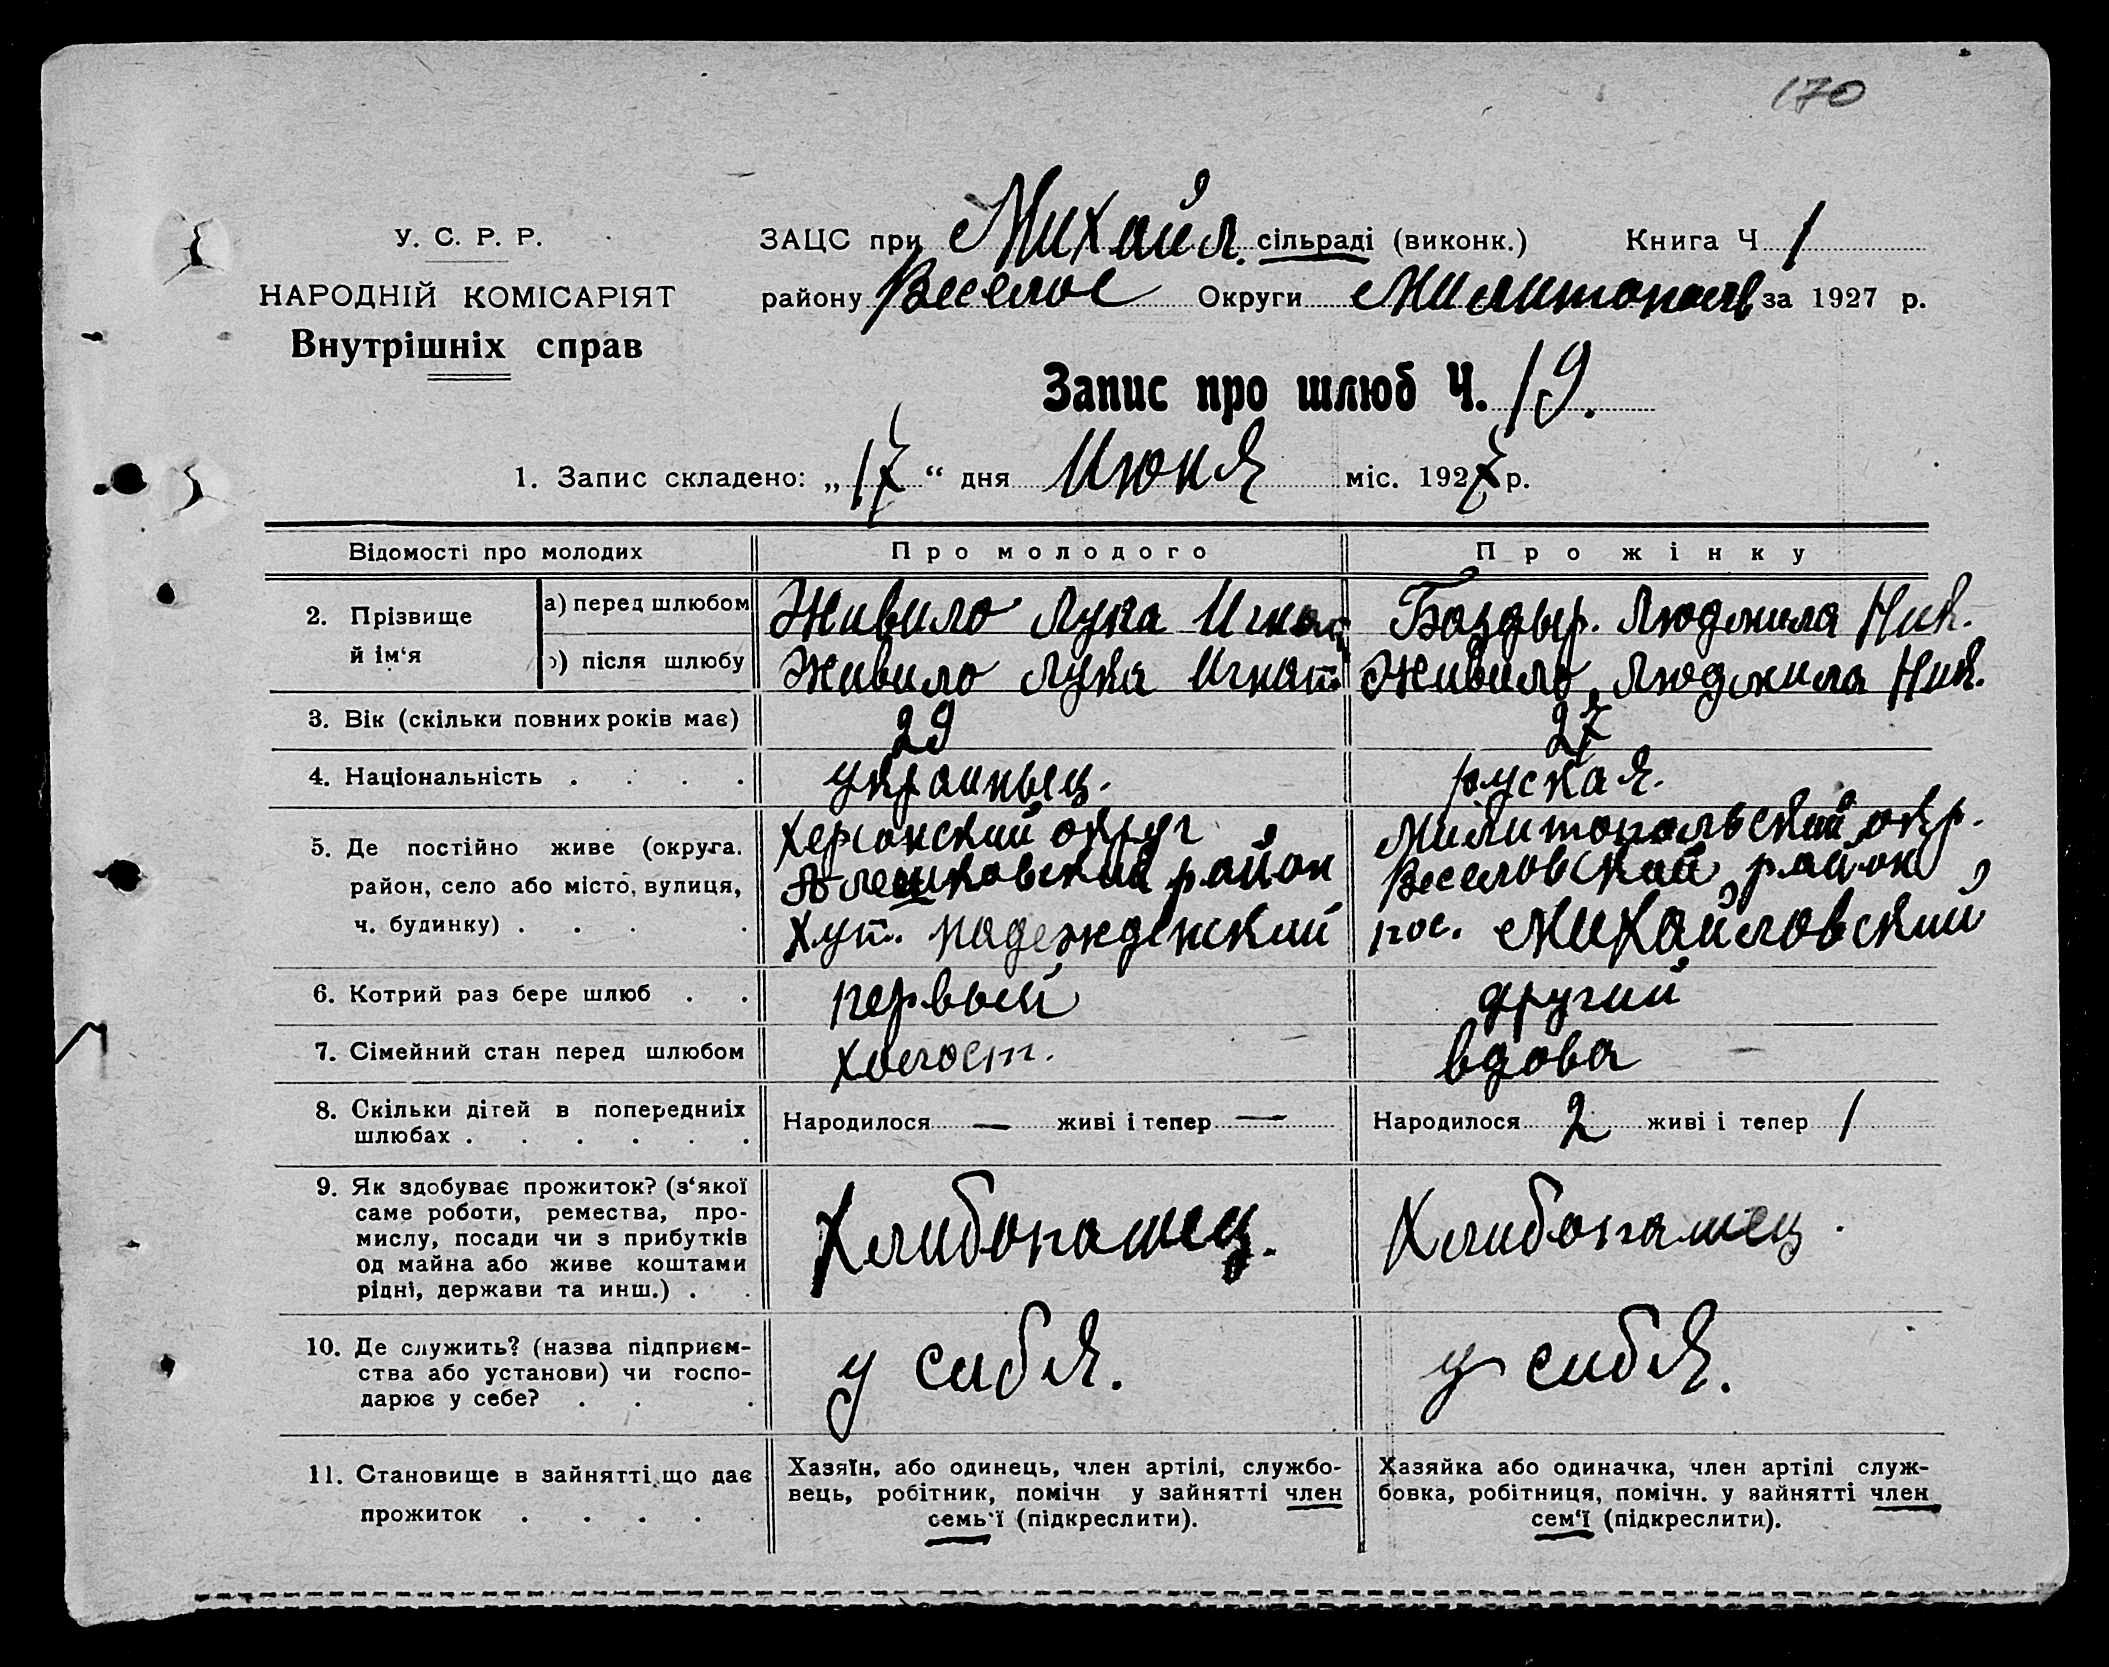 170
У. С. Р. Р.
НАРОДНІЙ КОМІСАРІЯТ
Внутрішніх справ
ЗАЦС при Михайл. сільраді (виконк.) Книга Ч 1
району Веселое Округи Милитополь за 1927 р.
Запис про шлюб Ч. 19.
1. Запис складено: „17“ дня Июня міс. 1927 р.
Відомості про молодих Про молодого Про жінку
2. Прізвище й ім‘я
а) перед шлюбом Живило Лука Игнат Баздыр. Людмила Ник.
) після шлюбу Живило Лука Игнат. Живило Людмила Ник.
3. Вік (скільки повних років має) 29 27
4. Національність . . . . украиныц. руская.
5. Де постійно живе (округа, район, село або місто, вулиця, ч. будинку) . . . .
Херсонский округ
Алешковский район
Хут. надежденский
Милитопольский окр.
Веселовский район
пос. Михайловский
6. Котрий раз бере шлюб . . первый другий
7. Сімейний стан перед шлюбом холост. вдова
8. Скільки дітей в попередниіх
шлюбах . . . . . .
Народилося — живі і тепер —
Народилося 2 живі і тепер 1
9. Як здобуває прожиток? (з‘якої
саме роботи, ремества, про-
мислу, посади чи з прибутків
од майна або живе коштами
рідні, держави та инш.) . .
Хлибопашец.
Хлибопашец.
10. Де служить? (назва підприєм-
ства або установи) чи госпо-
дарює у себе? . . .
у сибя.
у сибя.
11. Становище в зайнятті що дає
прожиток . . . . .
Хазяїн, або одинець, член артілі, службо-
вець, робітник, помічн у зайнятті член
семь‘ї (підкреслити).
Хазяйка або одиначка, член артілі служ-
бовка, робітниця, помічн. у зайнятті член
сем‘ї (підкреслити).